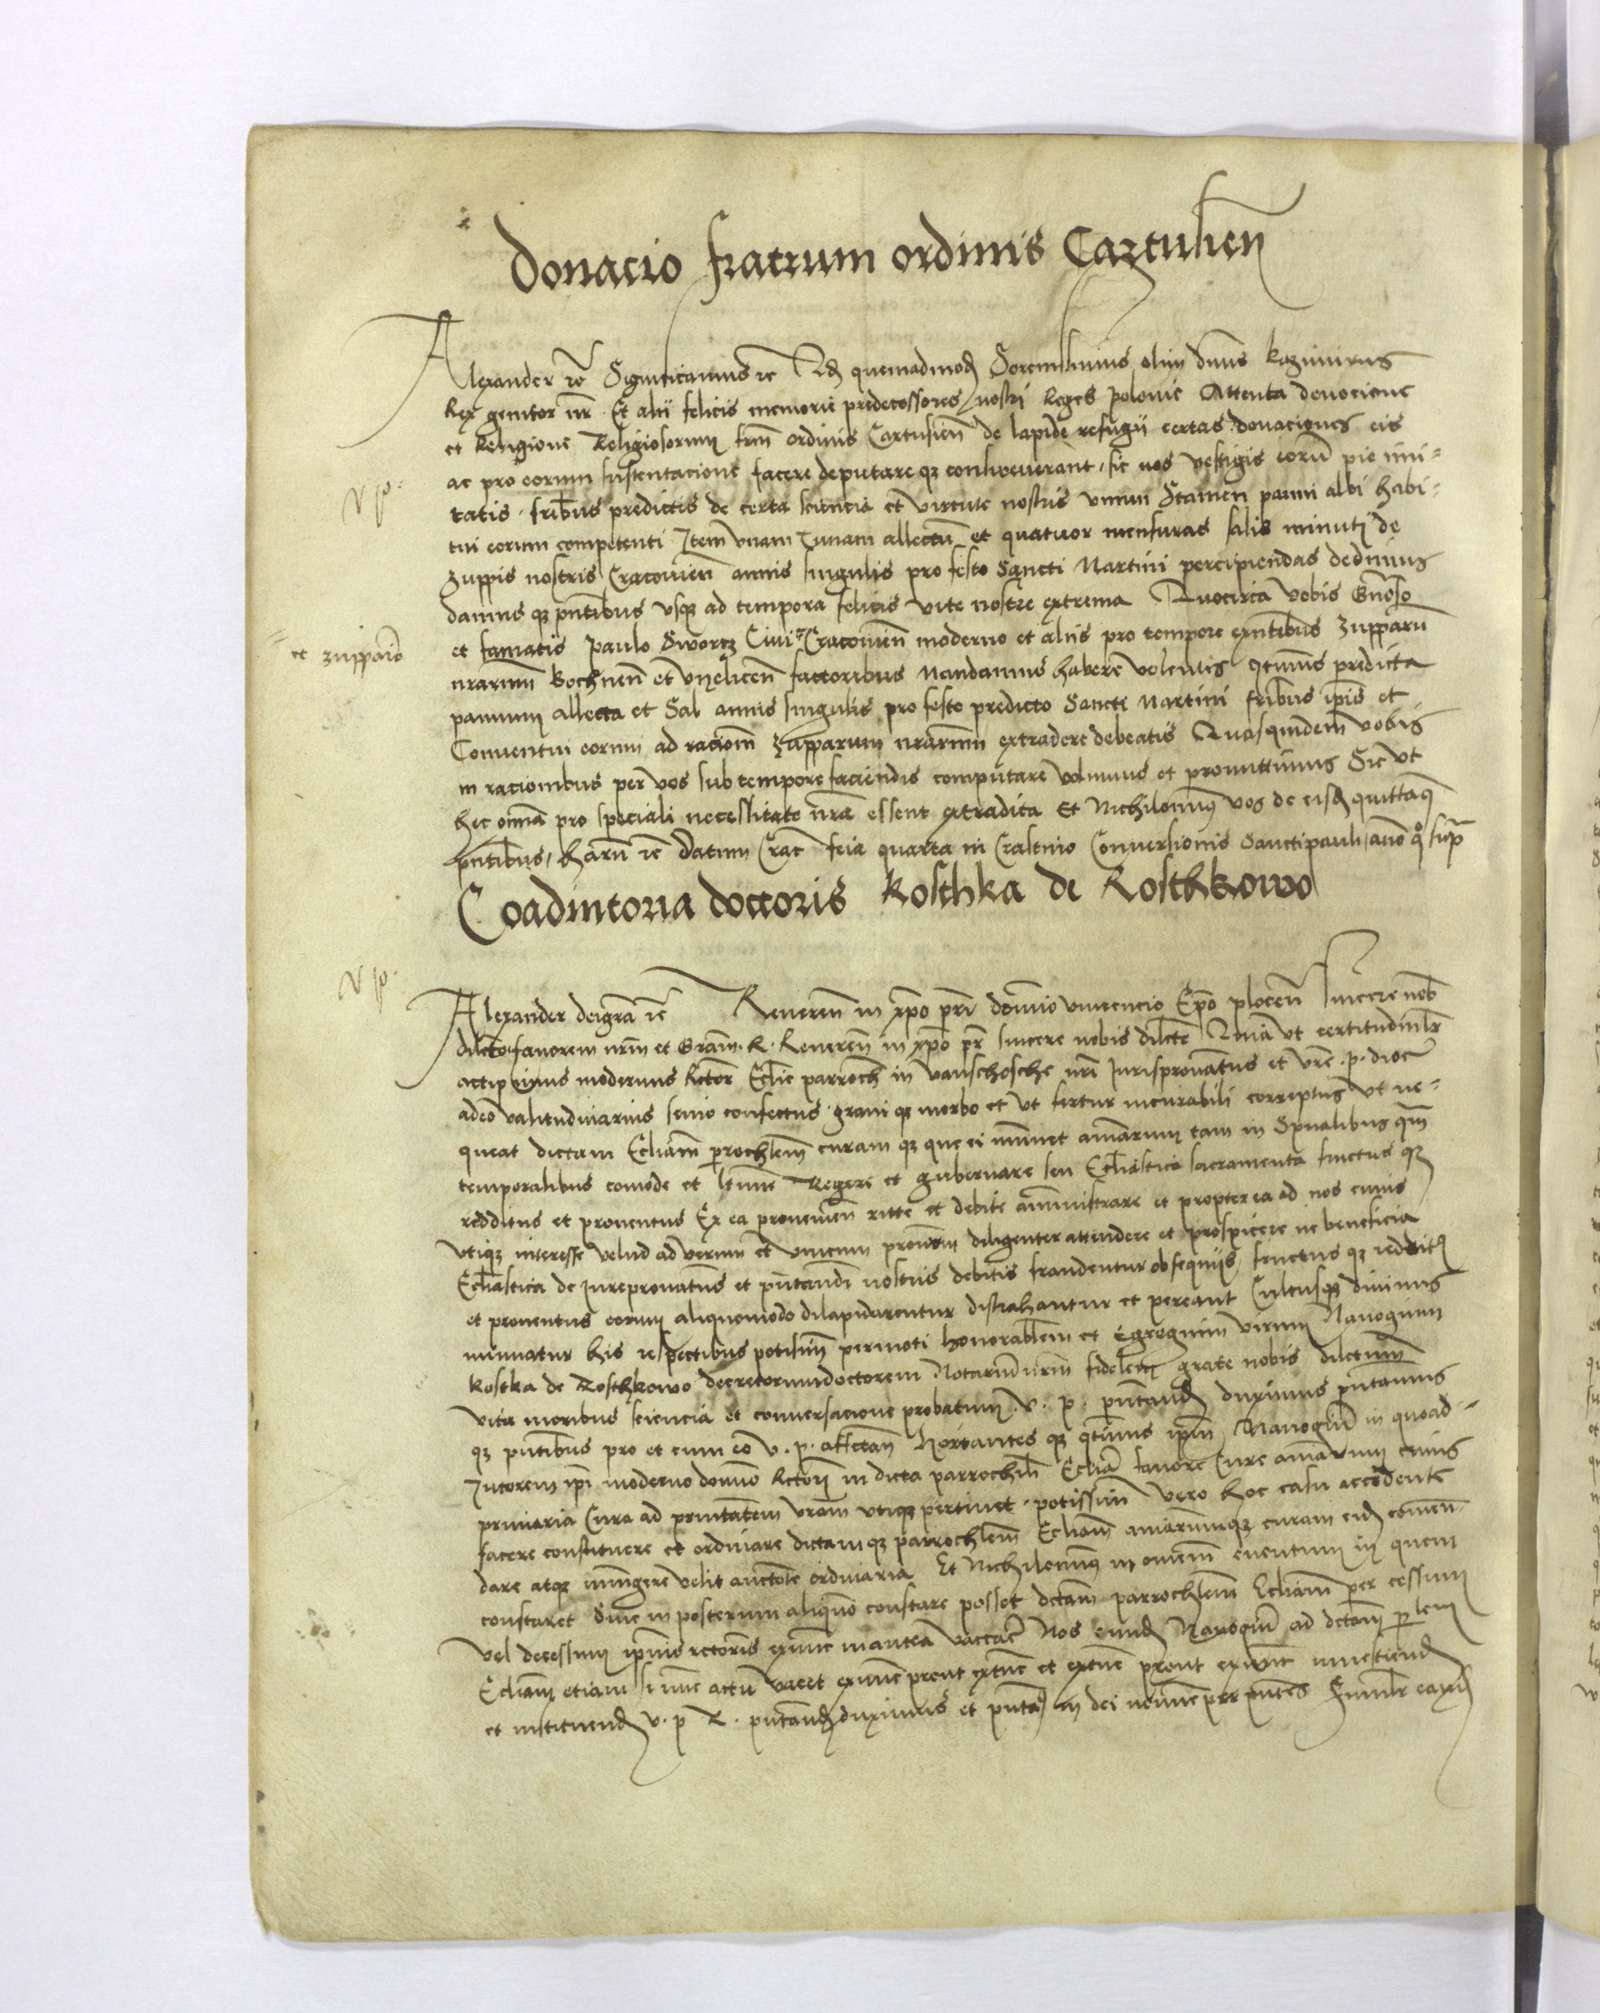 Donacio fratrum ordinis Cartusien
Alexander etc Significamus etc Quemadmod Serenissimus olim dnus Kazimirus
Rex genitor nr Et alii felicis memorie predecessores nostri Reges polonie Attenta devocione
et Religione Religiosorum frm ordinis Cartusien de lapide refugii certas donaciones eis
ac pro eorum sustentacione facere deputare qz consweverant sic nos vestigiis eorum pie imi-
tatis fribus predictis de certa sciencia et virtute nostris unum Stamen panni albi habi-
tui eorum competenti Item vnam Tunam allectum et quatuor mensuras salis minuti de
Zuppis nostris Cracovien annis singulis pro festo Sancti Martini percipiendas dedimus
damus qz pntibus usqz ad tempora felicis vite nostre extrema Quocirca vobis Gnoso
et zuppario
et famatis paulo Sworcz Civi Cracovien moderno et aliis pro tempore exntibus Zupparu
nrarum Bochnen et Vyelicen factoribus Mandamus habere volentes qtinus predicta
pannum allecta et Sal annis singulis pro festo predicto Sancti Martini fribus ipis et
Conventui eorum ad racionem Zupparum nrarum extradere debeatis Quasquidem vobis
in racionibus per vos sub tempore faciendis computare volumus et promittimus Sic ut
hec omnia pro speciali necessitate nra essent extradita Et Nichilominus vos de eisd quittamus
pntibus harum etc Datum Crac feia quarta in Crastino Conversionis Sancti pauli anno quo supra
Coadiutoria doctoris Kosthka de Rosthkowo
Alexander dei gra etc Reveren in xpo pri domino vincencio Epo plocen Sincere nob
dilecto favorem nrm et Gram R Reveren in xpo pr sincere nobis dilcte Quia ut certitudinlr
accepimus modernus Rector Eclie parroch in vanschosche nri Jurispronatus et vre p dioc
adeo valitudinarius senio confectus gravi qz morbo et ut fertur incurabili correptus ut ne-
queat dictam Ecliam parrochlem curam qz que ei iminet amarum tam in Spualibus qm
temporalibus comode et ltime Regere et gubernare seu Ecliastica sacramenta fructus qz
redditus et proventus Ex ea provenien ritte et debite administrare et propter ea ad nos cuius
utiqz interesse velud ad verum et unicum pronum diligenter attendere et prospicere ne beneficia
Ecliastica de Jurepronatus et pntandi nostris debitis fraudentur obsequiis fructus qz reddit
et proventus eorum aliquomodo dilapidarentur distrahantur et pereant Cultusqz divinus
minuatur his respectibus potisim permoti honorablem et Egregium virum Navogium
Kostka de Rosthkowo decretorum doctorem Notarium nrm fidelem grate nobis dilctum
vita moribus sciencia et conversacione probatum v. p. pntand duximus pntamus
qz pntibus pro et cum eo v. p. affectan Hortantes qz qtinus ipm Navogiu in quoad-
Jutorem ipi moderno domino Rctori in dicta parrochili Eclia favore Cure amarum cuius
primaria Cura ad prnitatem vram utiqz pertinet potissim vero hoc casu accedente
facere constituere et ordinare dictam qz parrochlem Ecliam amarumqz curam eid comen-
dare atqz iniungere velit auctote ordinaria Et Nichilominus in omnem eventum in quem
constaret Sive in posterum aliquo constare posset dctam parrochlem Ecliam per cessum
vel decessum ipius rectoris exnunc inantea vaccare Nos eund Navogiu ad dctam prlem
Ecliam etiam si nunc actu vacet exnunc prout extunc et extunc prout exnunc investiend
et instituend v. p R. pntand duximus et pnta in dei nomine per pntes Similr earu